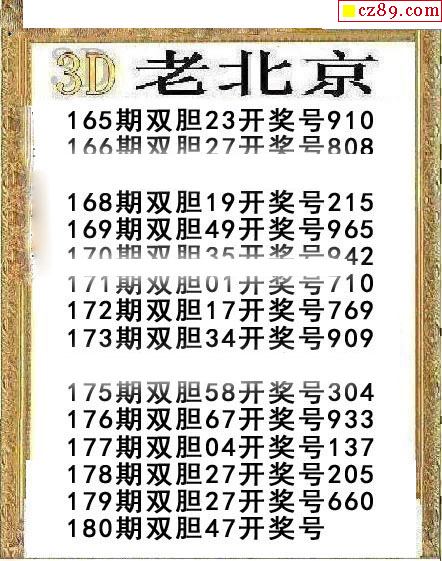 cz89.com
3D 老北京
165期双胆23开奖号910
166期双胆27开奖号808
168期双胆19开奖号215
169期双胆49开奖号965
170期双胆35开奖号942
171期双胆01开奖号710
172期双胆17开奖号769
173期双胆34开奖号909
175期双胆58开奖号304
176期双胆67开奖号933
177期双胆04开奖号137
178期双胆27开奖号205
179期双胆27开奖号660
180期双胆47开奖号